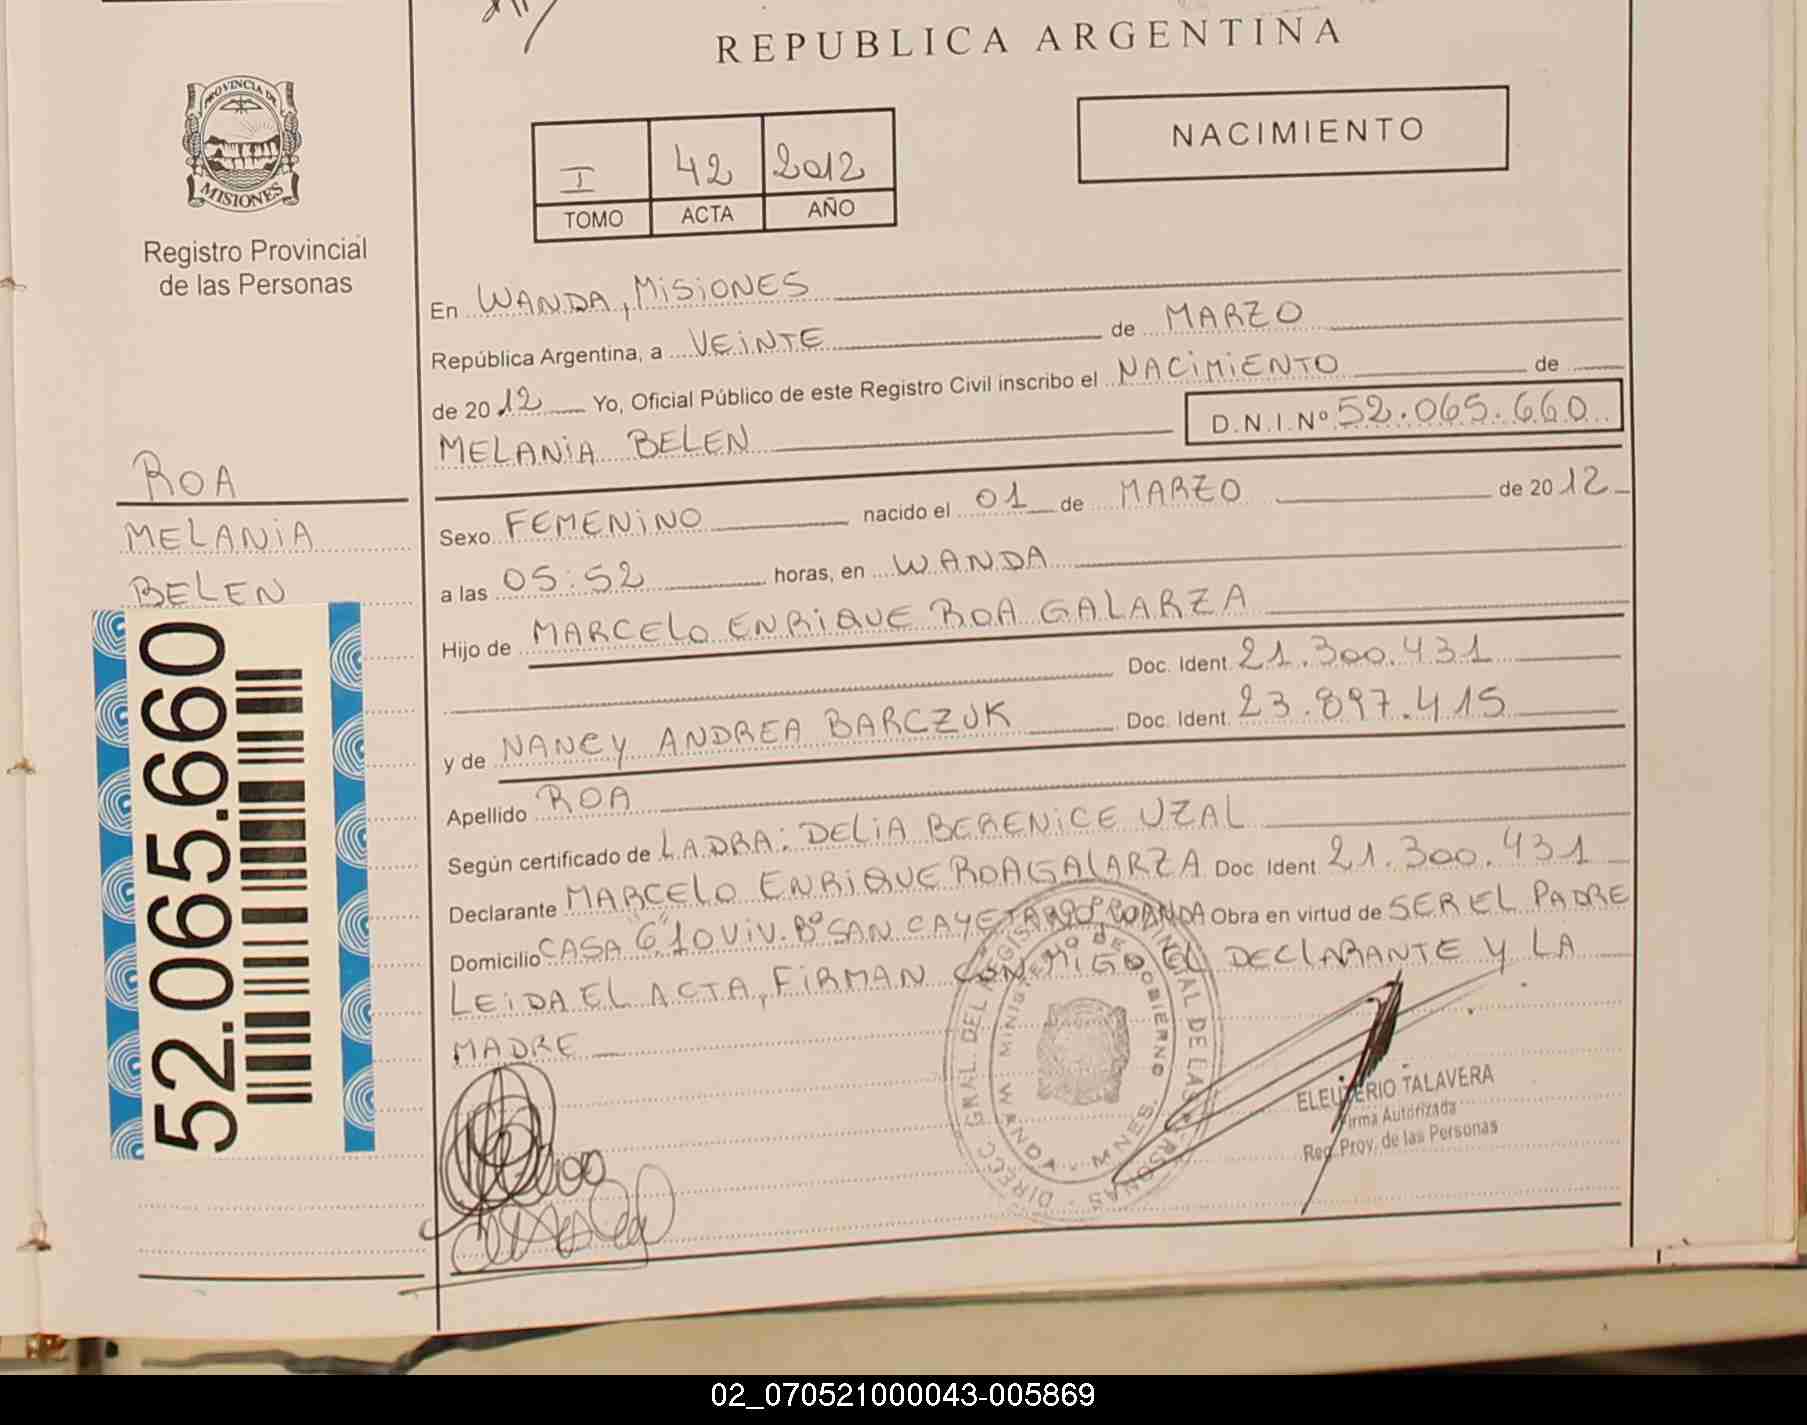 REPUBLICA ARGENTINA
PROVINCIA DE
MISIONES
Registro Provincial
de las Personas
NACIMIENTO
I 42 2012
TOMO ACTA AÑO
En WANDA, MISIONES
República Argentina, a VEINTE de MARZO
de 2012 Yo, Oficial Público de este Registro Civil inscribo el NACIMIENTO de
MELANIA BELEN D.N.I.Nº 52.065.660
Sexo FEMENINO nacido el 01 de MARZO de 2012
a las 05:52 horas, en WANDA
Hijo de MARCELO ENRIQUE ROA GALARZA
Doc. Ident. 21.300.431
y de NANCY ANDREA BARCZUK Doc. Ident. 23.897.415
Apellido ROA
Según certificado de LA DRA: DELIA BERENICE UZAL
Declarante MARCELO ENRIQUE ROA GALARZA Doc Ident 21.300.431
Domicilio CASA "6" 10 VIV. Bº SAN CAYETANO WANDA Obra en virtud de SER EL PADRE
LEIDA EL ACTA, FIRMAN CONMIGO EL DECLARANTE Y LA
MADRE
ROA
MELANIA
BELEN
52.065.660
DIRECC. GRAL. DEL REGISTRO PROVINCIAL DE LAS PERSONAS
MINISTERIO DE GOBIERNO
MNES.
ELEUTERIO TALAVERA
Firma Autorizada
Reg. Prov. de las Personas
02_070521000043-005869